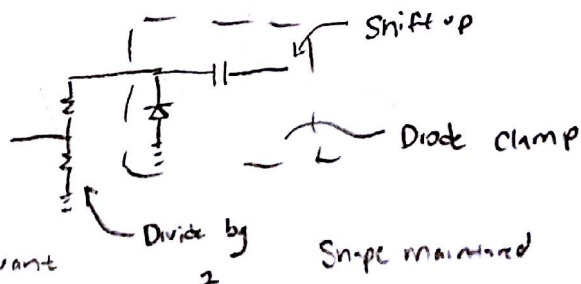 Shift up
Diode clamp
Divide by
2
want
Shape maintained